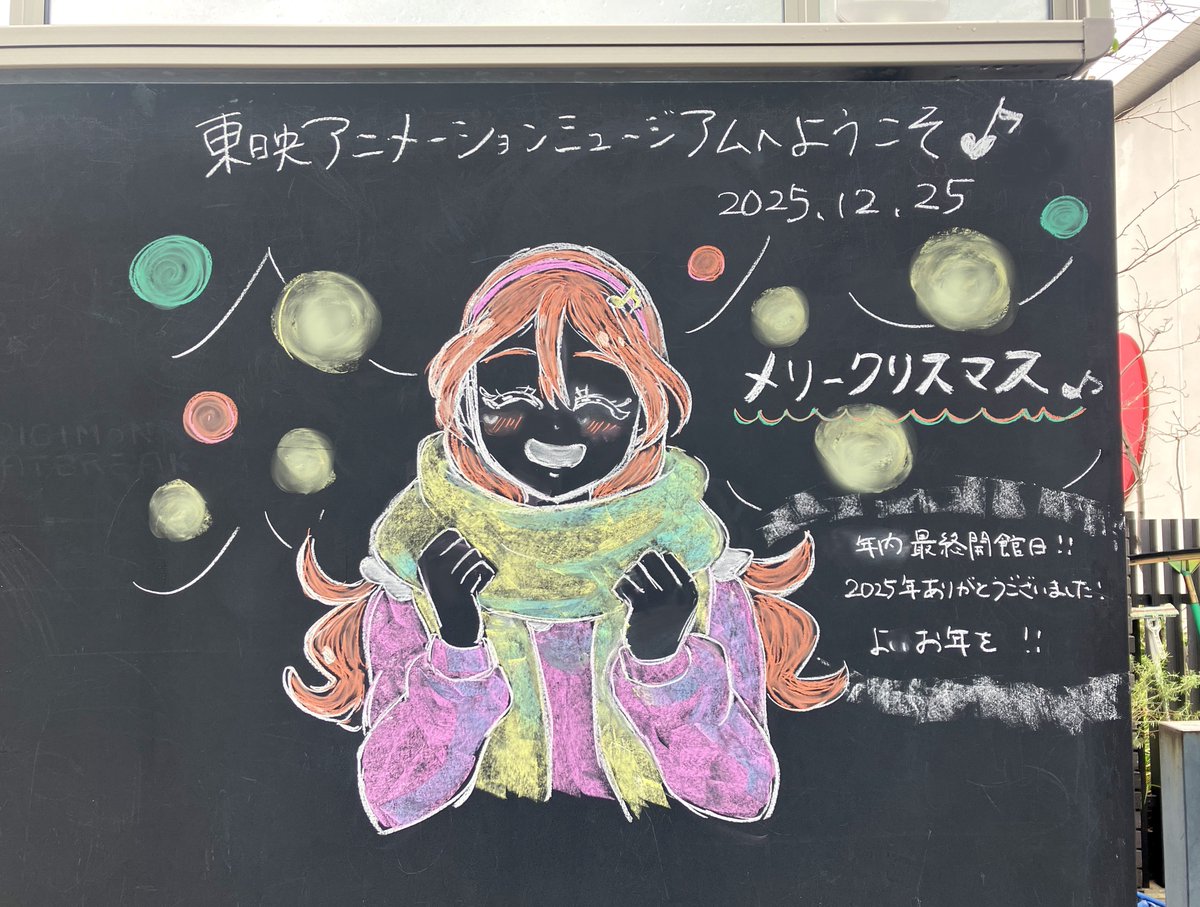 東映アニメーションミュージアムへようこそ♪
2025.12.25
メリークリスマス♪
年内最終開館日!!
2025年ありがとうございました!
よいお年を!!